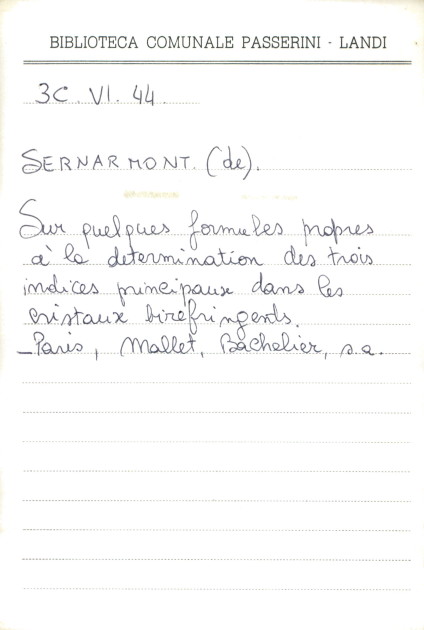 BIBLIOTECA COMUNALE PASSERINI - LANDI
3C. VI. 44.
SERNARMONT. (de).
Sur quelques formules propres
à la determination des trois
indices principaux dans les
cristaux birefringents.
_Paris, Mallet, Bachelier, s.a.